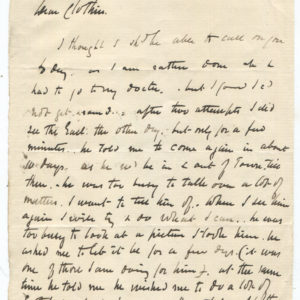 Dear Clothier.
I thought I shd be able to call on you
today. as I am rather done up &
had to go to my doctor. but I found I cd
not get round. after two attempts I did
see the Earl the other day. but only for a few
minutes. he told me to come again in about
10 days. as he wd be in & out of Town till
then. he was too busy to talk over a lot of
matters I want to tell him of. when I see him
again I will try & do what I can. he was
too busy to look at a picture I took him. he
asked me to let it be for a few days (it was
one of those I am doing for him). at the same
time he told me he wished me to do a lot of